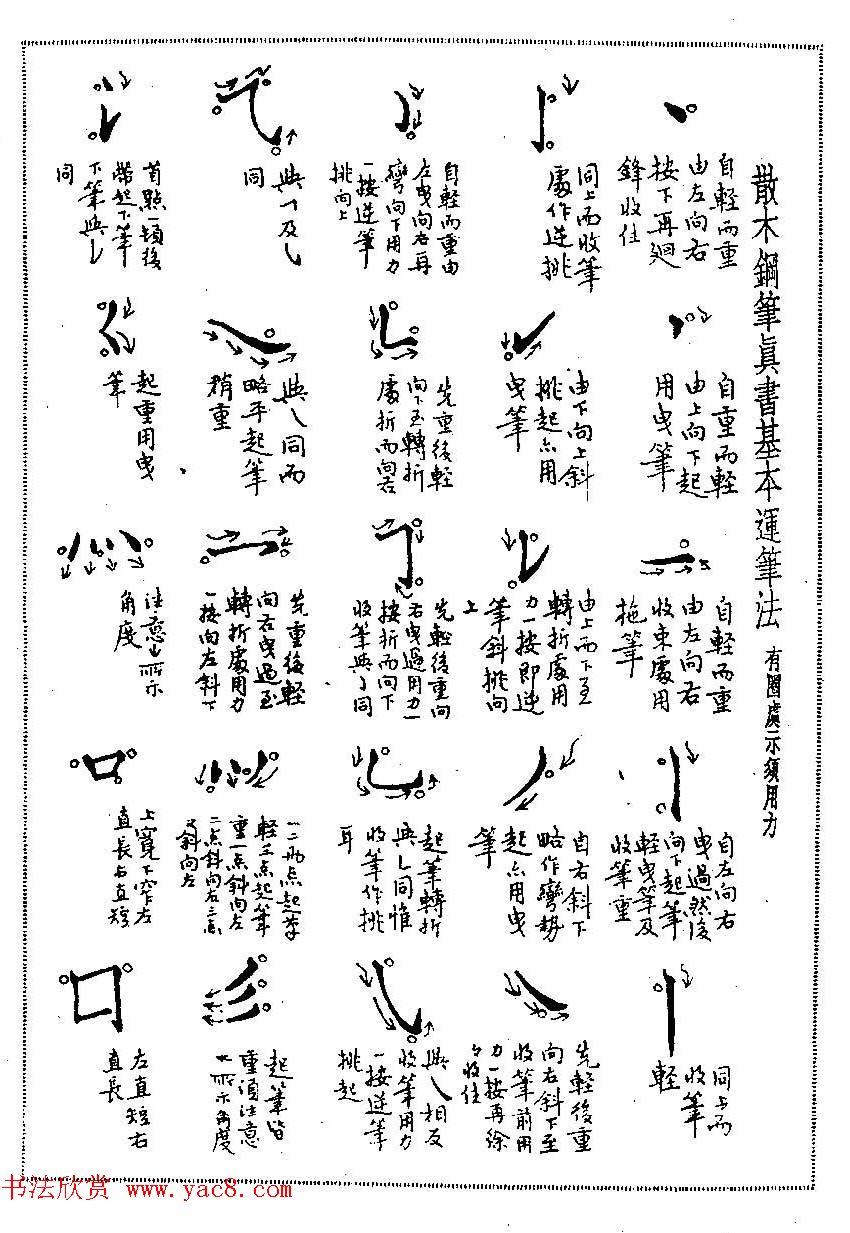 散木鋼筆真書基本運筆法
有圈處示須用力
自輕而重
由左向右
按下再廻
鋒收住
自重而輕
由上向下起
用曳筆
自輕而重
由左向右
收束處用
拖筆
自左向右
曳過然後
向下起筆
輕曳筆及
收筆重
同上而
收筆
輕
同上而收筆
處作逆挑
由下向上斜
挑起亦用
曳筆
由上而下至
轉折處用
力一按即逆
筆斜挑向
上
自右斜下
略作彎勢
起亦用曳
筆
先輕後重
向右斜下至
收筆前用
力一按再徐
々收住
自輕而重由
左曳向右再
彎向下用力
一按逆筆
挑向上
先重後輕
向下至轉折
處折而向右
先輕後重向
右曳過用力一
按折而向下
收筆與亅同
起筆轉折
與乚同惟
收筆作挑
耳
與乀相反
收筆用力
一按逆筆
挑起
與乛及乚
同
與乀同而
略平起筆
稍重
先重後輕
向右曳過至
轉折處用力
一按向左斜下
一二兩点起筆
輕三点起筆
重一点斜向左
二点斜向右三点
又斜向左
起筆皆
重須注意
所示角度
首點一頓後
帶起下筆
下筆與
同
起重用曳
筆
注意所示
角度
上寬下窄左
直長右直短
左直短右
直長
书法欣赏 www.yac8.com